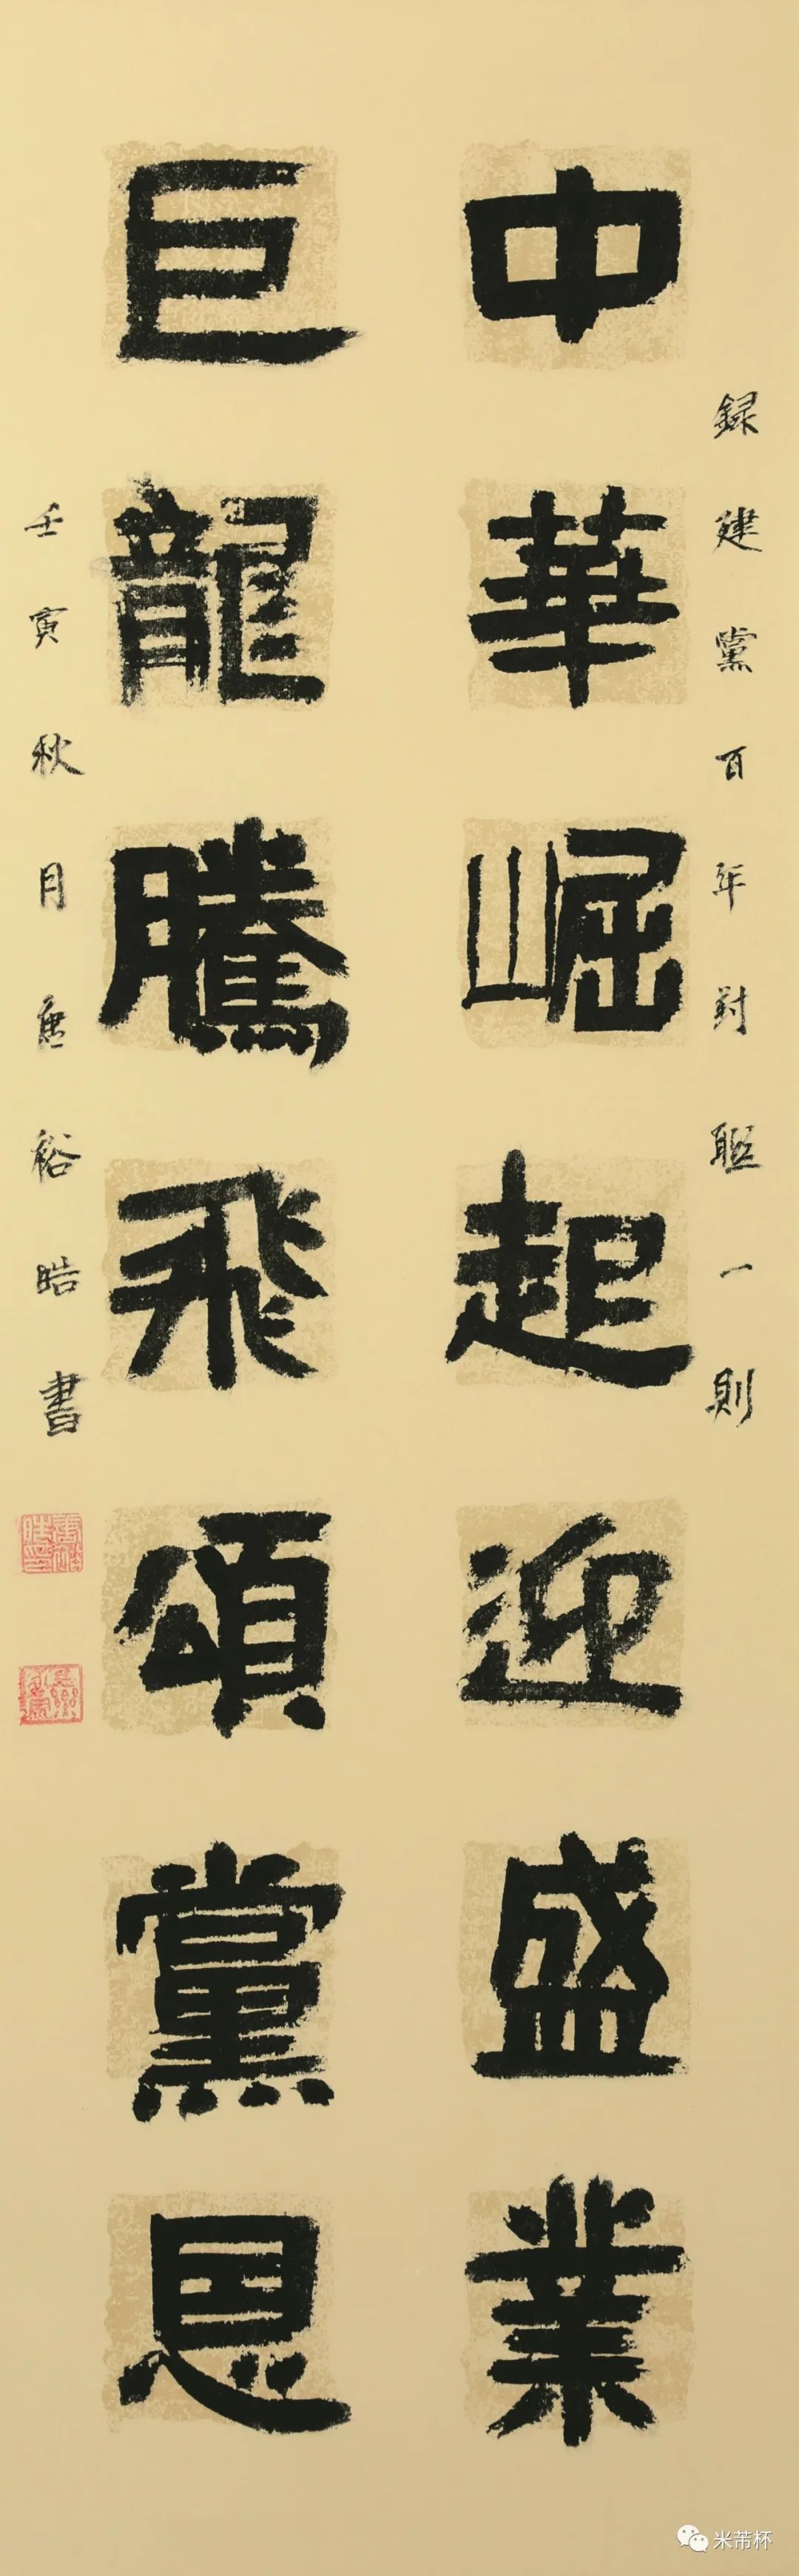 録建黨百年對聯一則
中華崛起迎盛業
巨龍騰飛頌黨恩
壬寅秋月唐裕皓書
米芾杯